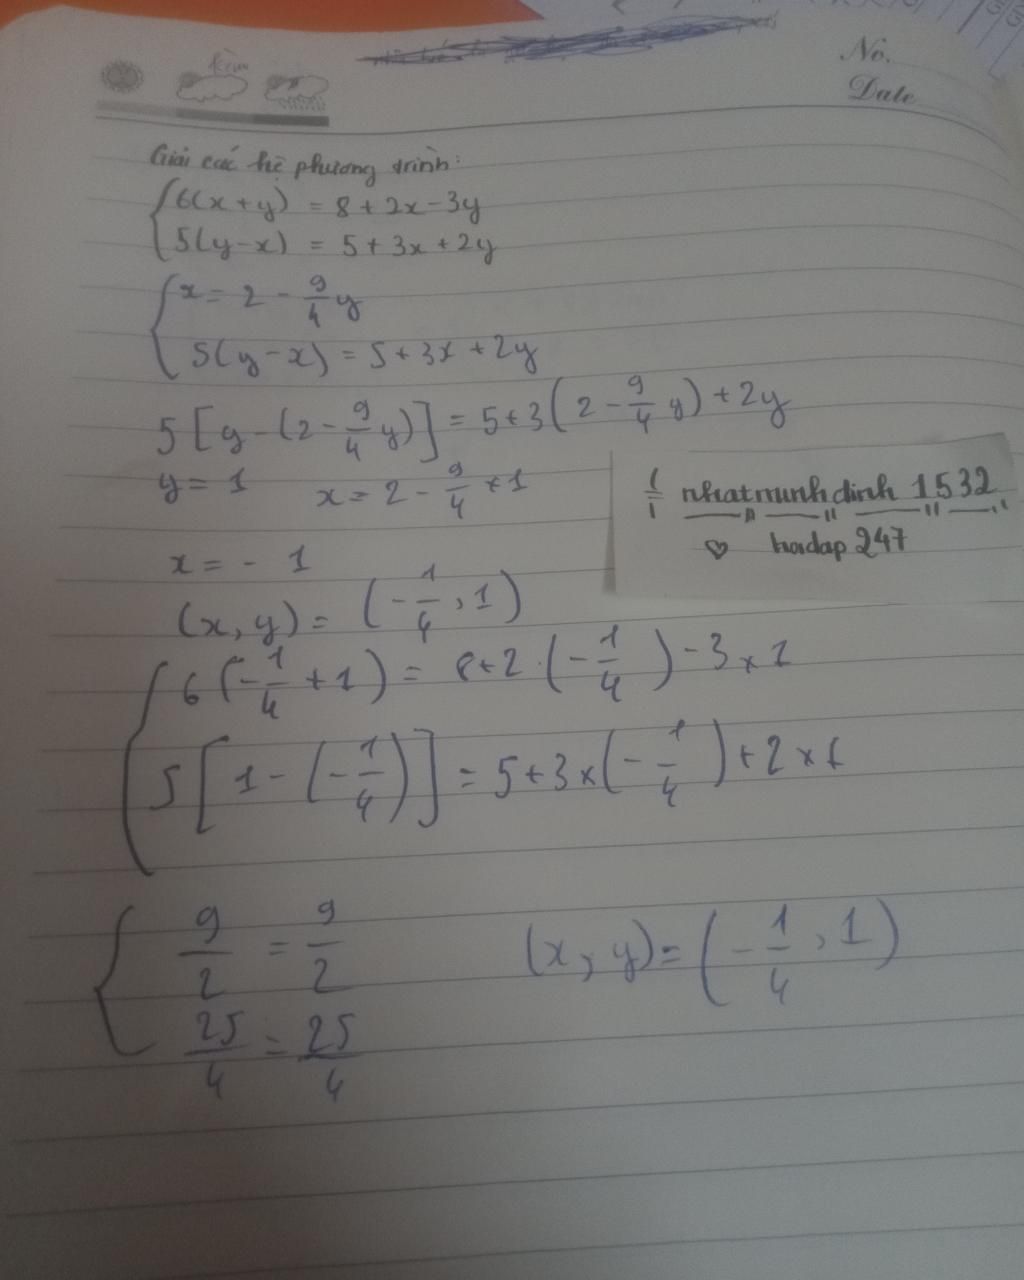 kèm
No.
Date
Giải các hệ phương trình:
{ 6(x+y) = 8 + 2x - 3y
5(y-x) = 5 + 3x + 2y
{ x = 2 - 9/4 y
5(y-x) = 5 + 3x + 2y
5[y-(2-9/4 y)] = 5+3(2-9/4 y)+2y
y = 1 x = 2 - 9/4 × 1
nhatminhdinh 1532
♡ hoidap 247
x = - 1
(x, y) = (-1/4, 1)
{ 6(-1/4+1) = 8+2·(-1/4)-3×1
5[1-(-1/4)] = 5+3×(-1/4)+2×1
{ 9/2 = 9/2 (x, y) = (-1/4, 1)
25/4 = 25/4